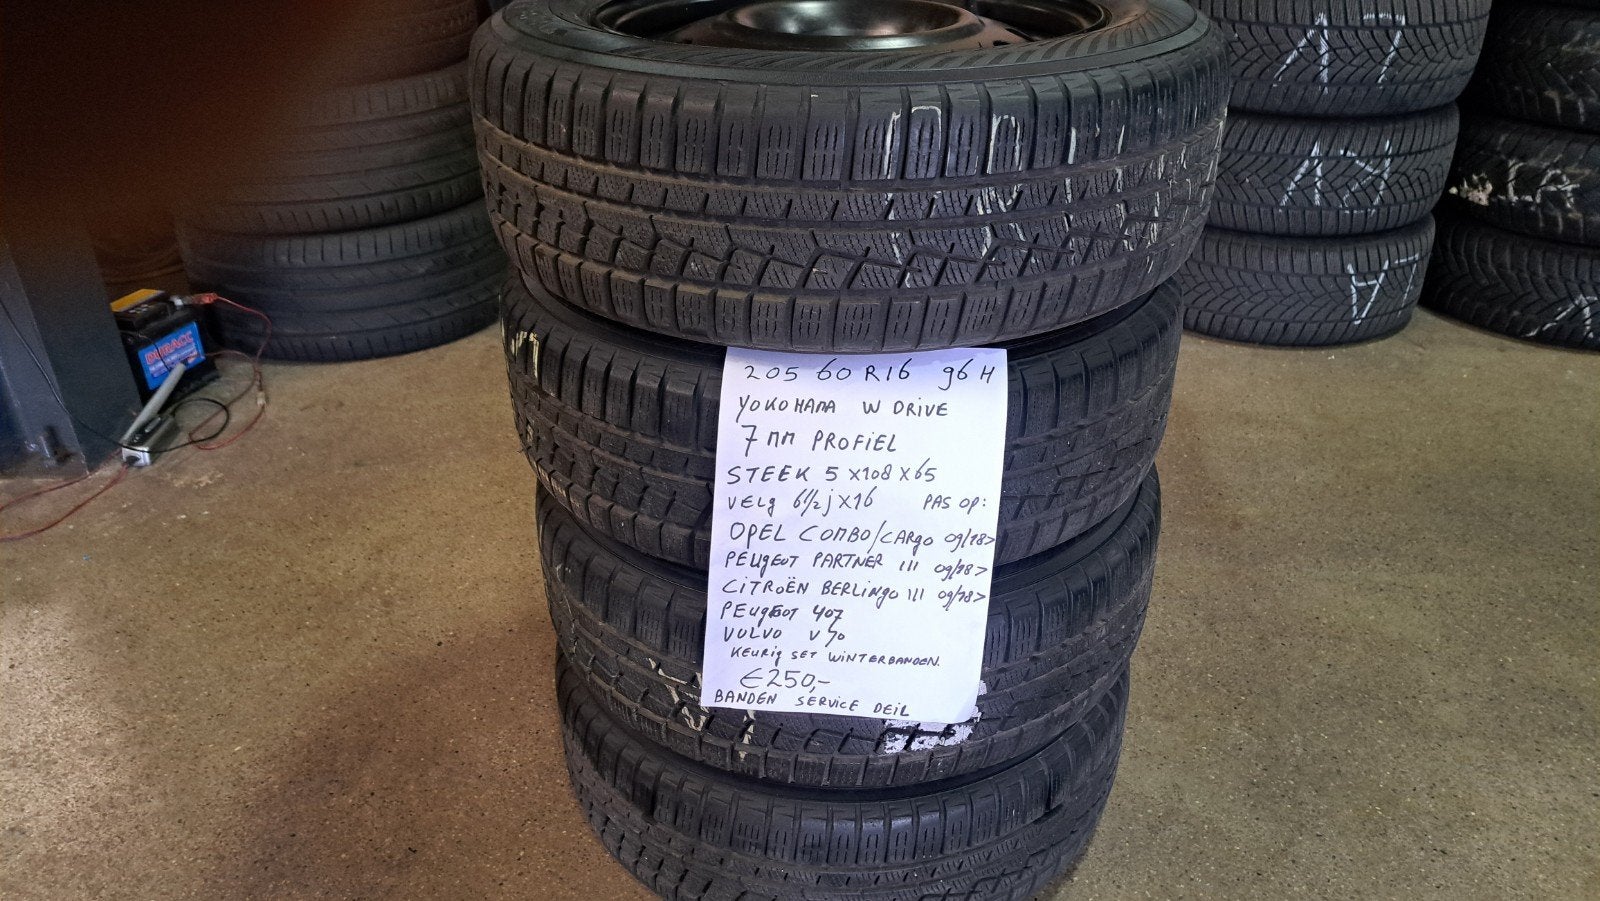 205 60 R16 96 H
YOKOHAMA W DRIVE
7 MM PROFIEL
STEEK 5 x108 x65
VELG 6 1/2 J x16 PAS OP:
OPEL COMBO/CARGO 09/18>
PEUGEOT PARTNER III 09/18>
CITROËN BERLINGO III 09/18>
PEUGEOT 407
VOLVO V70
KEURIG SET WINTERBANDEN.
€250,-
BANDEN SERVICE DEIL
DURACELL